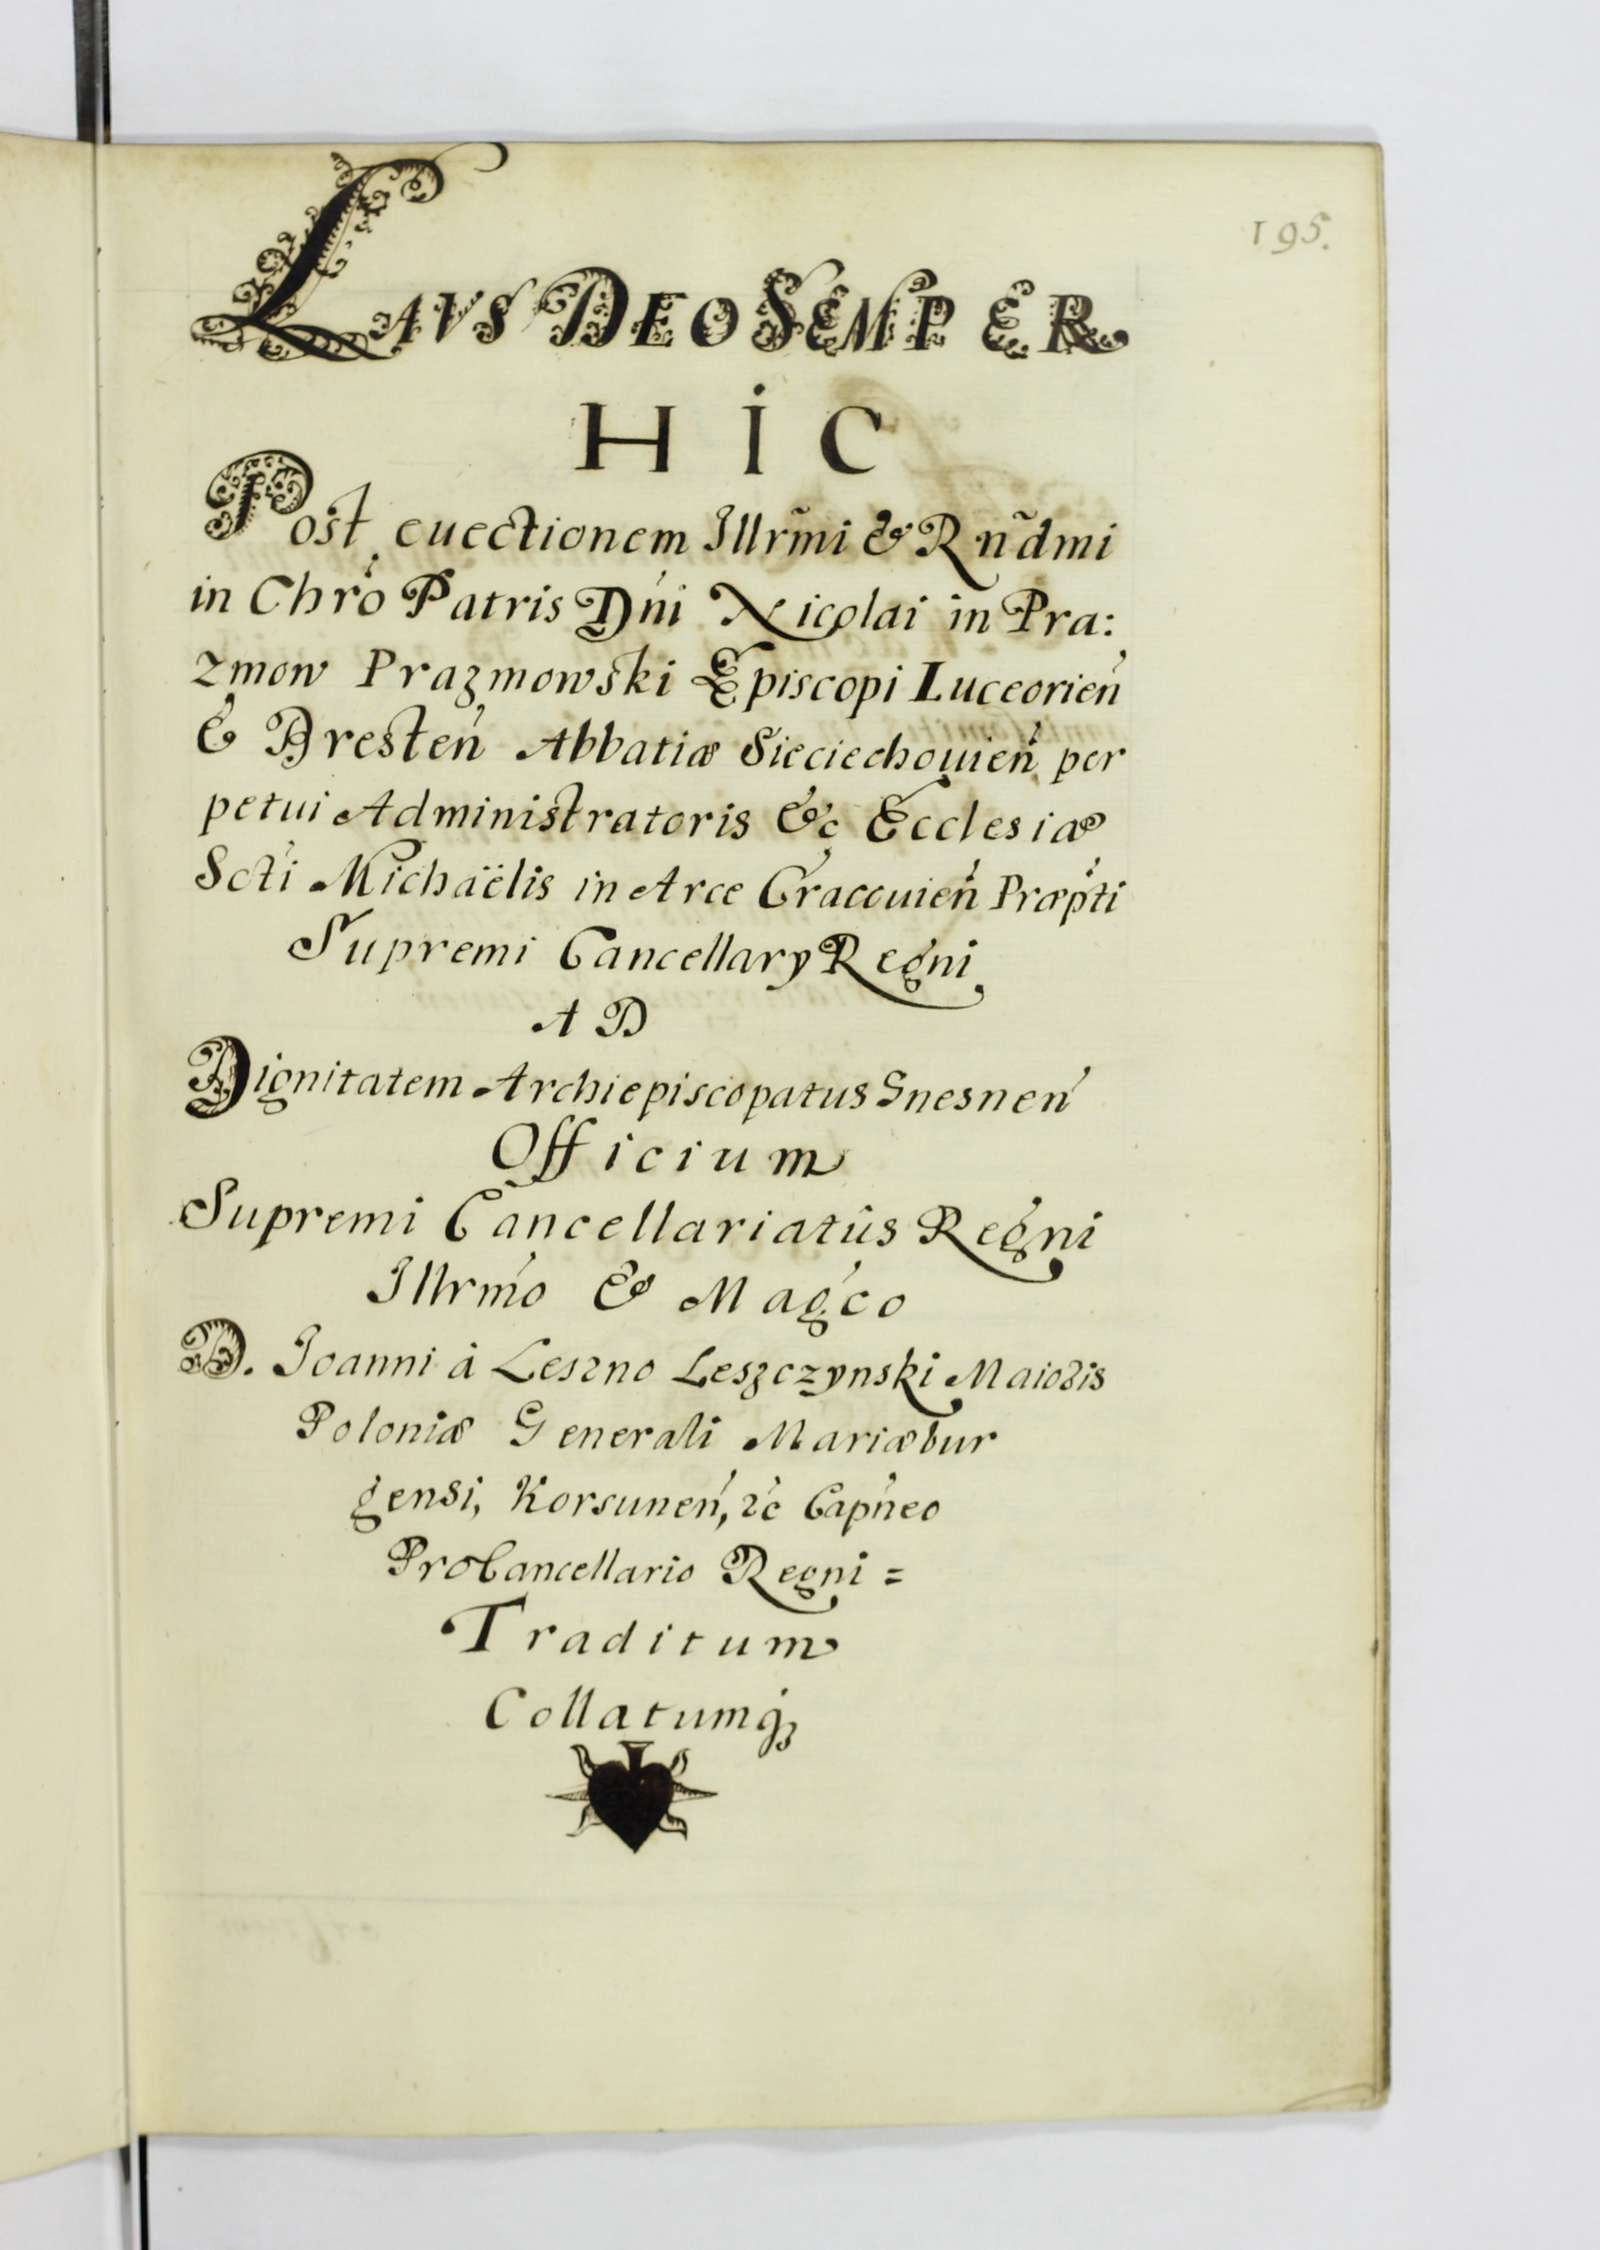 195.
LAVS DEO SEMPER
HIC
Post euectionem Illrm̃i & Rñdmi
in Chrõ Patris Dńi Nicolai in Pra:
zmow Prazmowski Episcopi Luceorień
& Bresteń Abbatiæ Sieciechouień per
petui Administratoris &c Ecclesiæ
Scti Michaëlis in Arce Craccuień Præṕti
Supremi Cancellary Regni
AD
Dignitatem Archiepiscopatus Gnesneń
Officium
Supremi Cancellariatûs Regni
Illrḿo & Maǵco
D. Ioanni à Leszno Leszczynski Maioris
Poloniæ Generali Mariæbur
gensi, Korsuneń, &c Capńeo
ProCancellario Regni =
Traditum
Collatumq₃